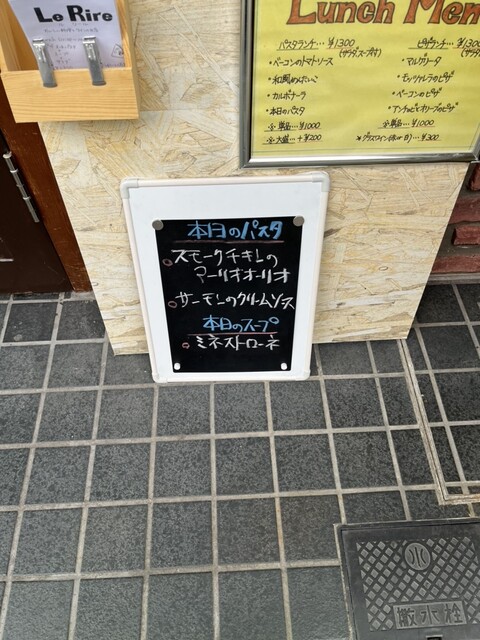 Le Rire
Lunch Men
パスタランチ…¥1300
(サラダ、スープ付)
・ベーコンのトマトソース
・和風めんたいこ
・カルボナーラ
・本日のパスタ
※単品…¥1000
※大盛…+¥200
ピザランチ…¥130
(サラダ
・マルゲリータ
・モッツァレラのピザ
・ベーコンのピザ
・アンチョビオリーブのピザ
※単品…¥1000
*グラスワイン(赤or白)…¥300
本日のパスタ
○スモークチキンの
アーリオオーリオ
○サーモンのクリームソース
本日のスープ
○ミネストローネ
水
散水栓